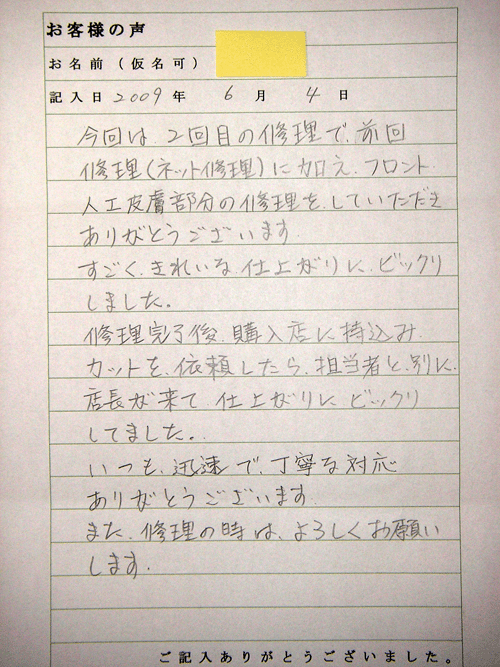 お客様の声
お名前（仮名可）
記入日 2009 年 6 月 4 日
今回は、2回目の修理で、前回
修理(ネット修理)に加え、フロント
人工皮膚部分の修理を、していただき
ありがとうございます
すごく、きれいな、仕上がりに、ビックリ
しました。
修理完了後、購入店に持込み
カットを、依頼したら、担当者と、別に、
店長が来て、仕上がりに、ビックリ
してました。
いつも、迅速で、丁寧な対応
ありがとうございます
また、修理の時は、よろしくお願い
します.
ご記入ありがとうございました。